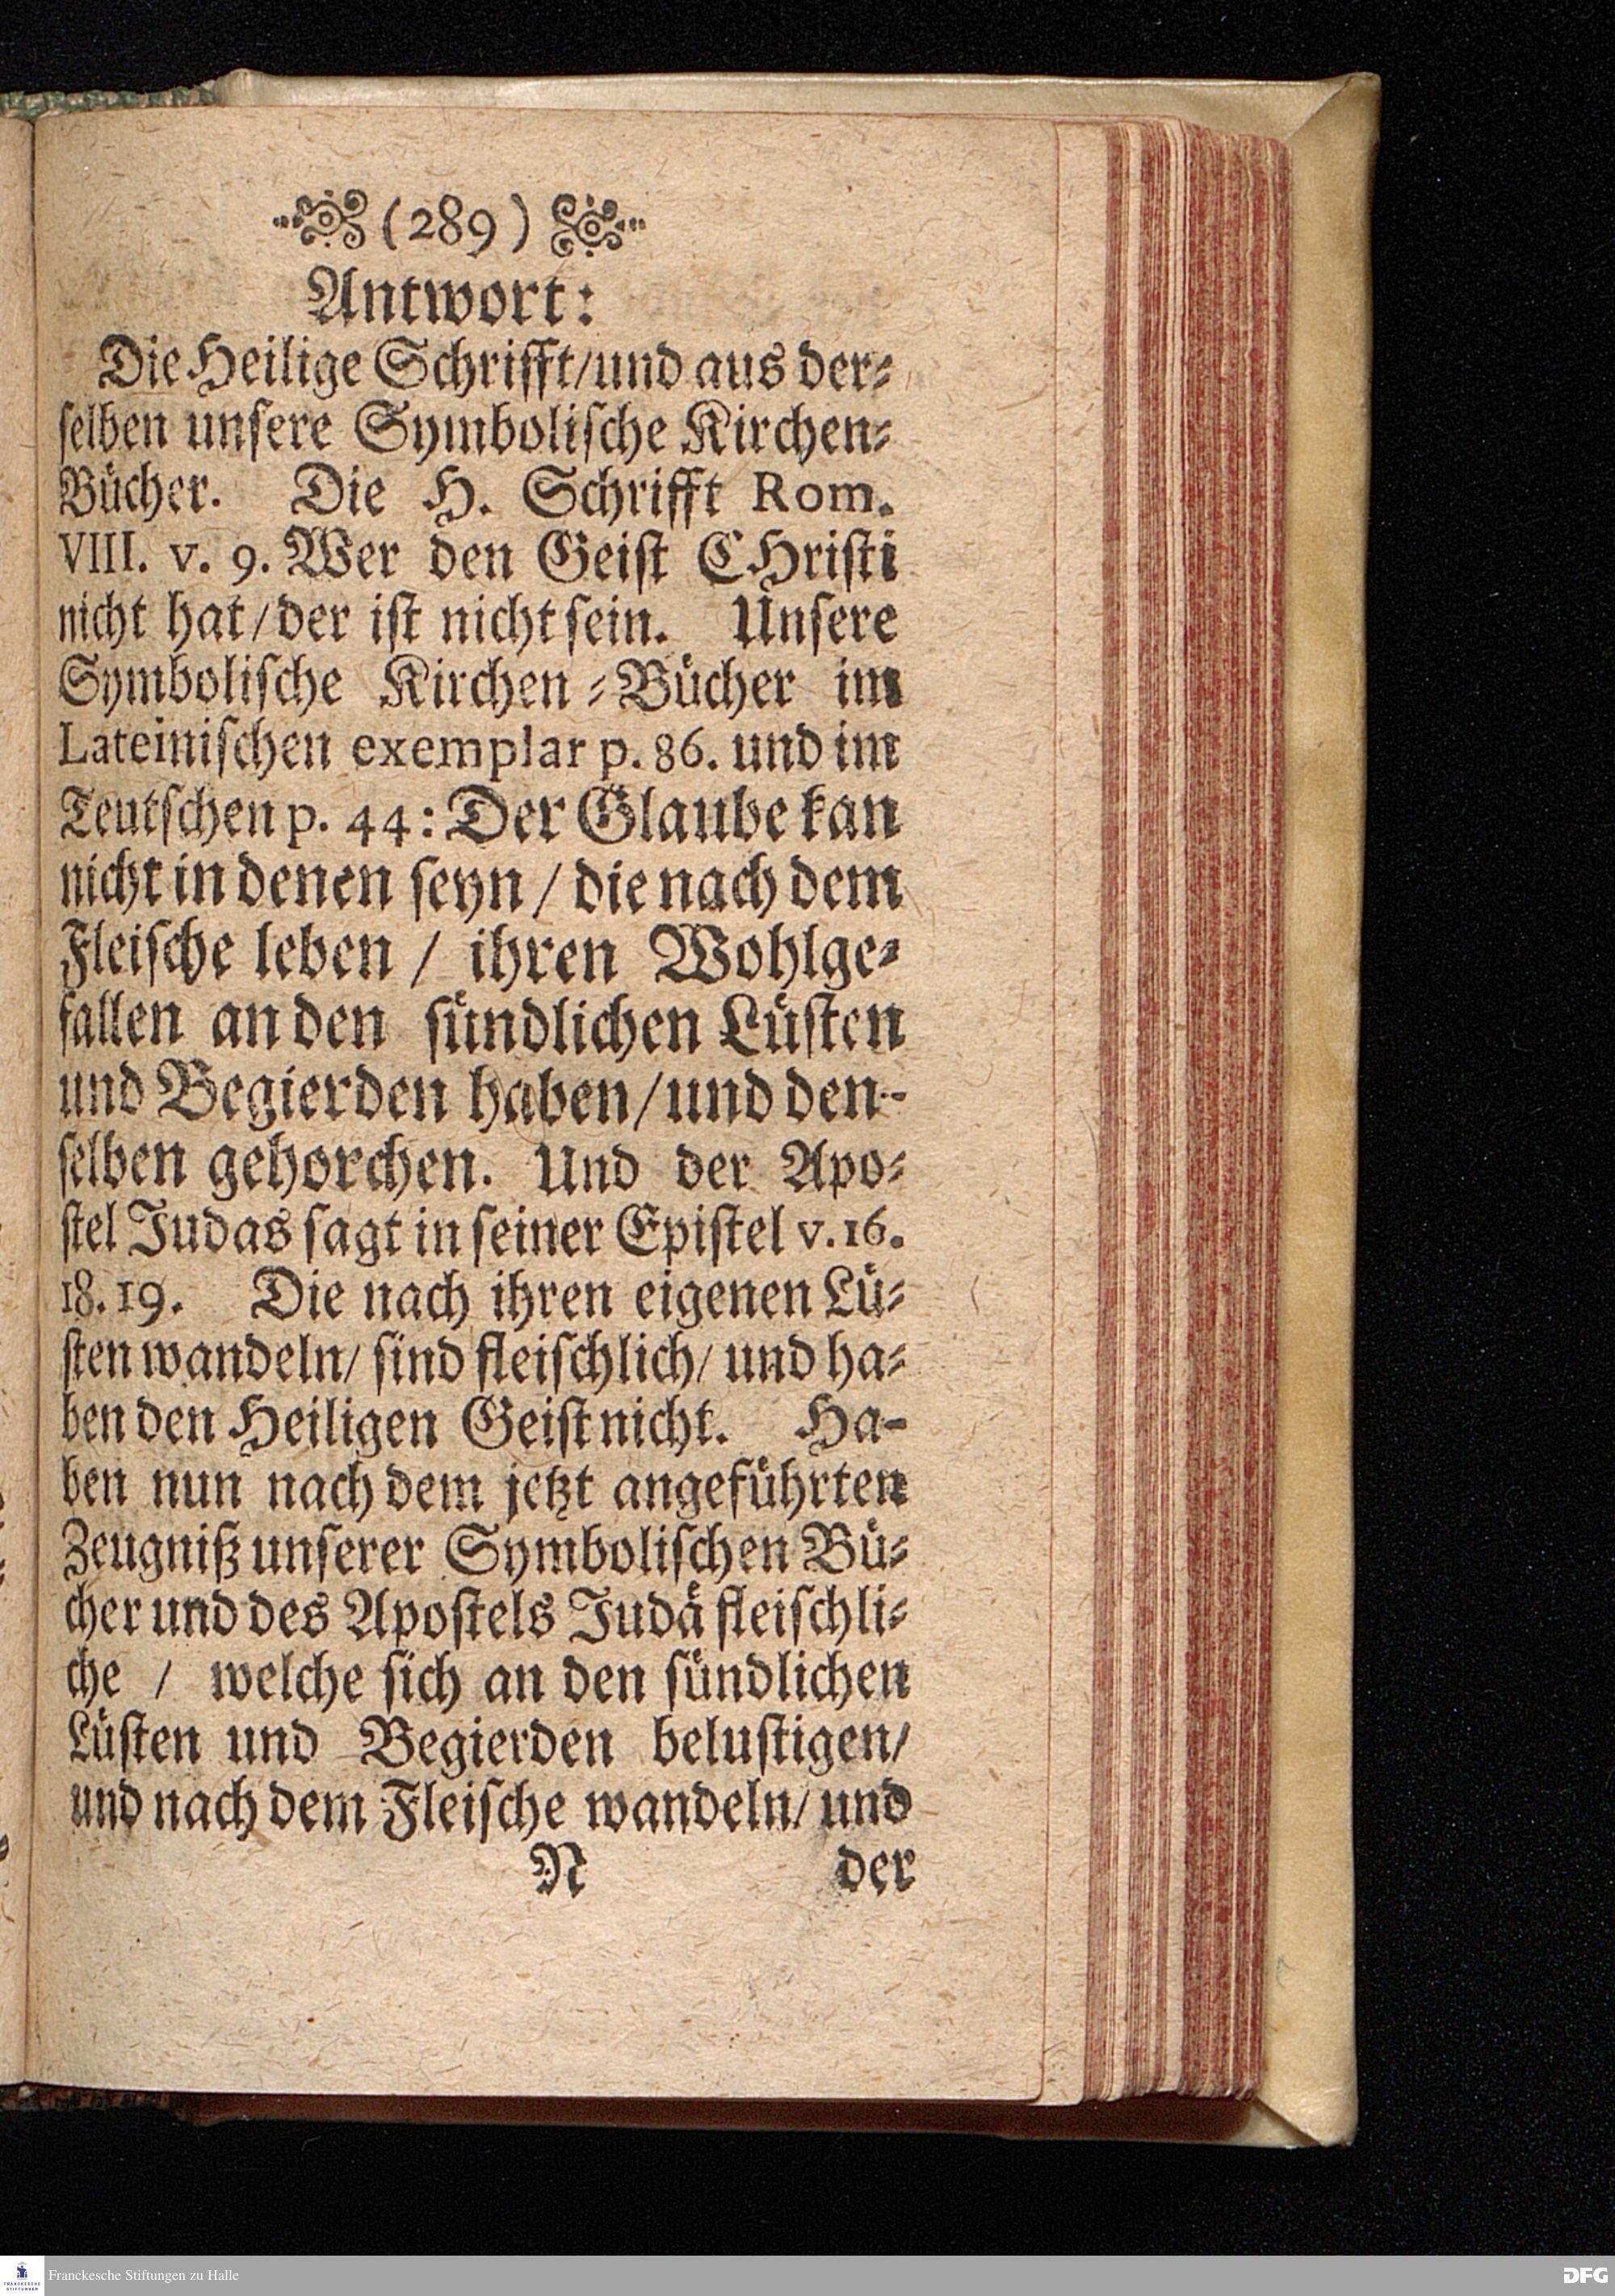 (289)
Antwort:
Die Heilige Schrifft/und aus der⸗
ſelben unſere Symboliſche Kirchen⸗
Bücher. Die H. Schrifft Rom.
VIII. v. 9. Wer den Geiſt CHriſti
nicht hat/der iſt nicht ſein. Unſere
Symboliſche Kirchen⸗Bücher im
Lateiniſchen exemplar p. 86. und im
Teutſchen p. 44: Der Glaube kan
nicht in denen ſeyn / die nach dem
Fleiſche leben / ihren Wohlge⸗
fallen an den ſündlichen Lüſten
und Begierden haben/und den-
ſelben gehorchen. Und der Apo⸗
ſtel Judas ſagt in ſeiner Epiſtel v. 16.
18. 19. Die nach ihren eigenen Lü⸗
ſten wandeln/ ſind fleiſchlich/ und ha⸗
ben den Heiligen Geiſt nicht. Ha-
ben nun nach dem jetzt angeführten
Zeugniß unſerer Symboliſchen Bü⸗
cher und des Apoſtels Judä fleiſchli⸗
che / welche ſich an den ſündlichen
Lüſten und Begierden beluſtigen/
und nach dem Fleiſche wandeln/ und
N der
FRANCKESCHE STIFTUNGEN Franckesche Stiftungen zu Halle DFG